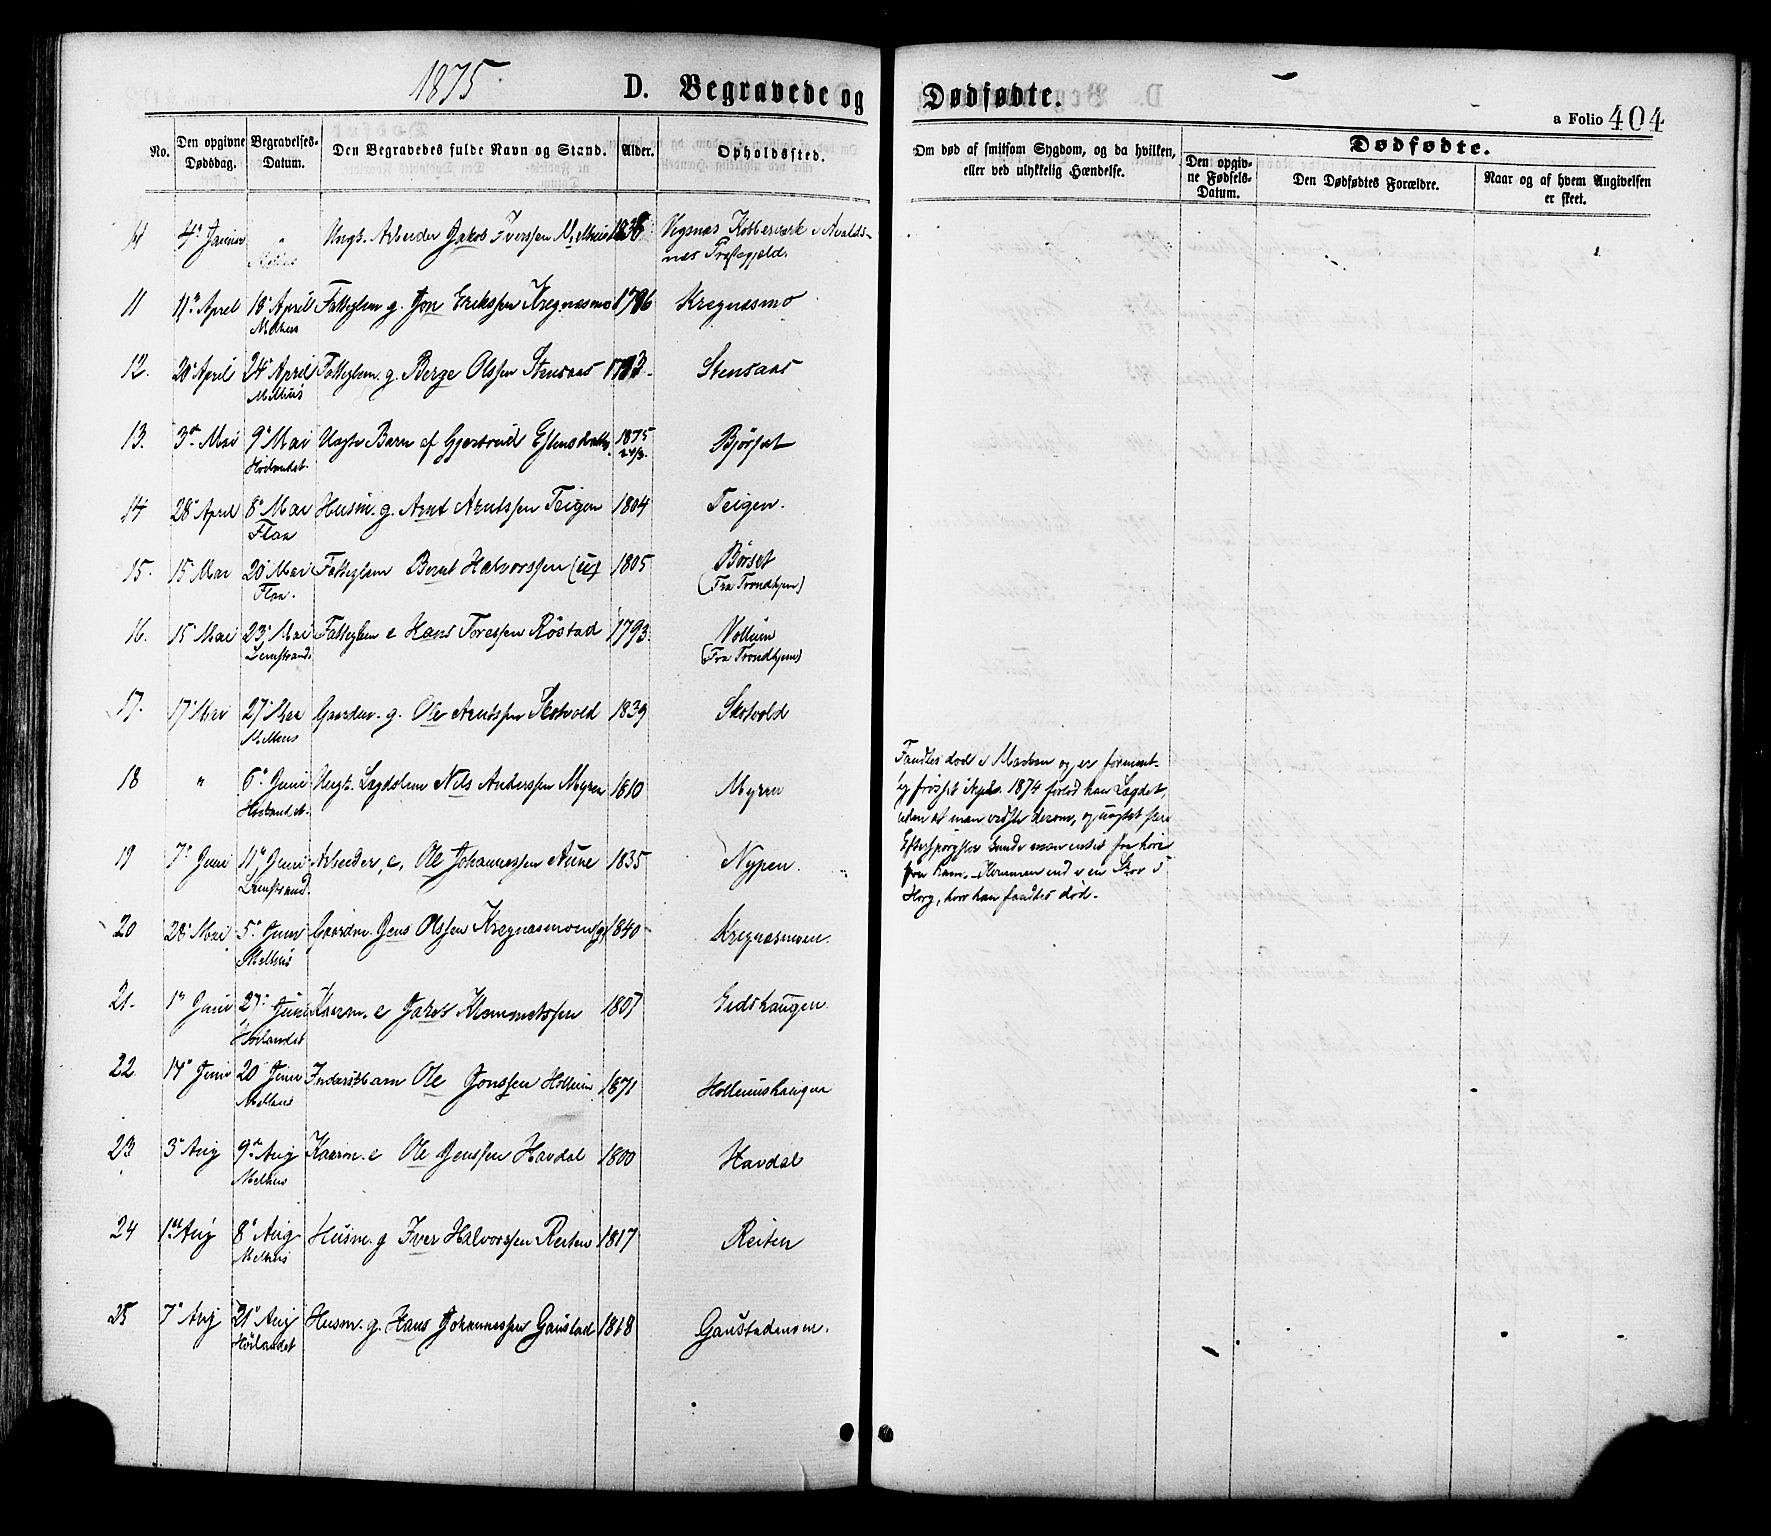 1875.
D. Begravede og Dødfødte.
a Folio 404
No. Den opgivne Dødsdag. Begravelses-Datum. Den Begravedes fulde Navn og Stand. Alder. Opholdssted. Om død af smitsom Sygdom, og da hvilken, eller ved ulykkelig Hændelse. Dødfødte.
Den opgivne Fødsels-Datum. Den Dødfødtes Forældre. Naar og af hvem Angivelsen er skeet.
4de Januar " Melhus Ungk. Arbeider Jakob Iverssen Melhus 1838 Vigsnæs Kobberværk i Avaldsnæs Præstegjeld.
11 11te April 18de April Melhus Fattiglem g. Jon Erikssen Kregnæsmo 1796 Kregnæsmo
12. 20de April 24de April Melhus Fattiglem. g. Berge Olssen Stensaas Stensaas
13. 3die Mai 9de Mai Hølandet. Uægte Barn af Gjertrud Estensdatter. 1875 24/3. Bjørset
14 28de April 8de Mai Flaa Husm. g. Arnt Arntssen Teigen 1804 Teigen.
15. 15 Mai 20de Mai Flaa. Fattiglem Bernt Halvorssen (u) 1805 Børset (Fra Trondhjem)
16. 15 Mai 23de Mai Lenstrand. Fattiglem e Hans Toressen Røstad 1793. (Fra Trondhjem)
17. 17de Mai 27de Mai Melhus Gaardm. g. Ole Arntssen Skotvold 1839 Skotvold
18 " 6te Juni Hølandet. Ungk. Lægdslem Nils Anderssen Myren 1810 Myren
Fandtes død i Marken og er forment-
lig frosset ihjel. 1874 forlod han Lægdet,
uden at man vidste derom, og uagtet flere
Efterspørgsler kunde man intet faa høre
fra ham. Kommen ind i en Skov i
Horg, hvor han fandtes død.
19 7de Juni 11te Juni Lenstrand. Arbeider, e, Ole Johannessen Aune 1835 Nypen.
20 28de Mai 5te Juni Melhus Gaardm. Jens Olssen Kregnæsmoen (g) 1840 Kregnæsmoen.
21. 1ste Juni 27de Juni Hølandet Kaarm. e Jakob Klemmetssen 1807 Eidshaugen
22 14de Juni 20 Juni Melhus Inderstbarn Ole Jonssen Hollum 1871 Hollumshaugen
23 3die Aug 9de Aug Melhus Kaarm. e Ole Jenssen Havdal 1800 Havdal
24 1ste Aug 8de Aug Melhus Husm. g Iver Halvorssen Reiten 1817 Reiten
25 7de Aug 21de Aug Hølandet Husm. g. Hans Johannessen Gaustad 1818 Gaustadmoen.